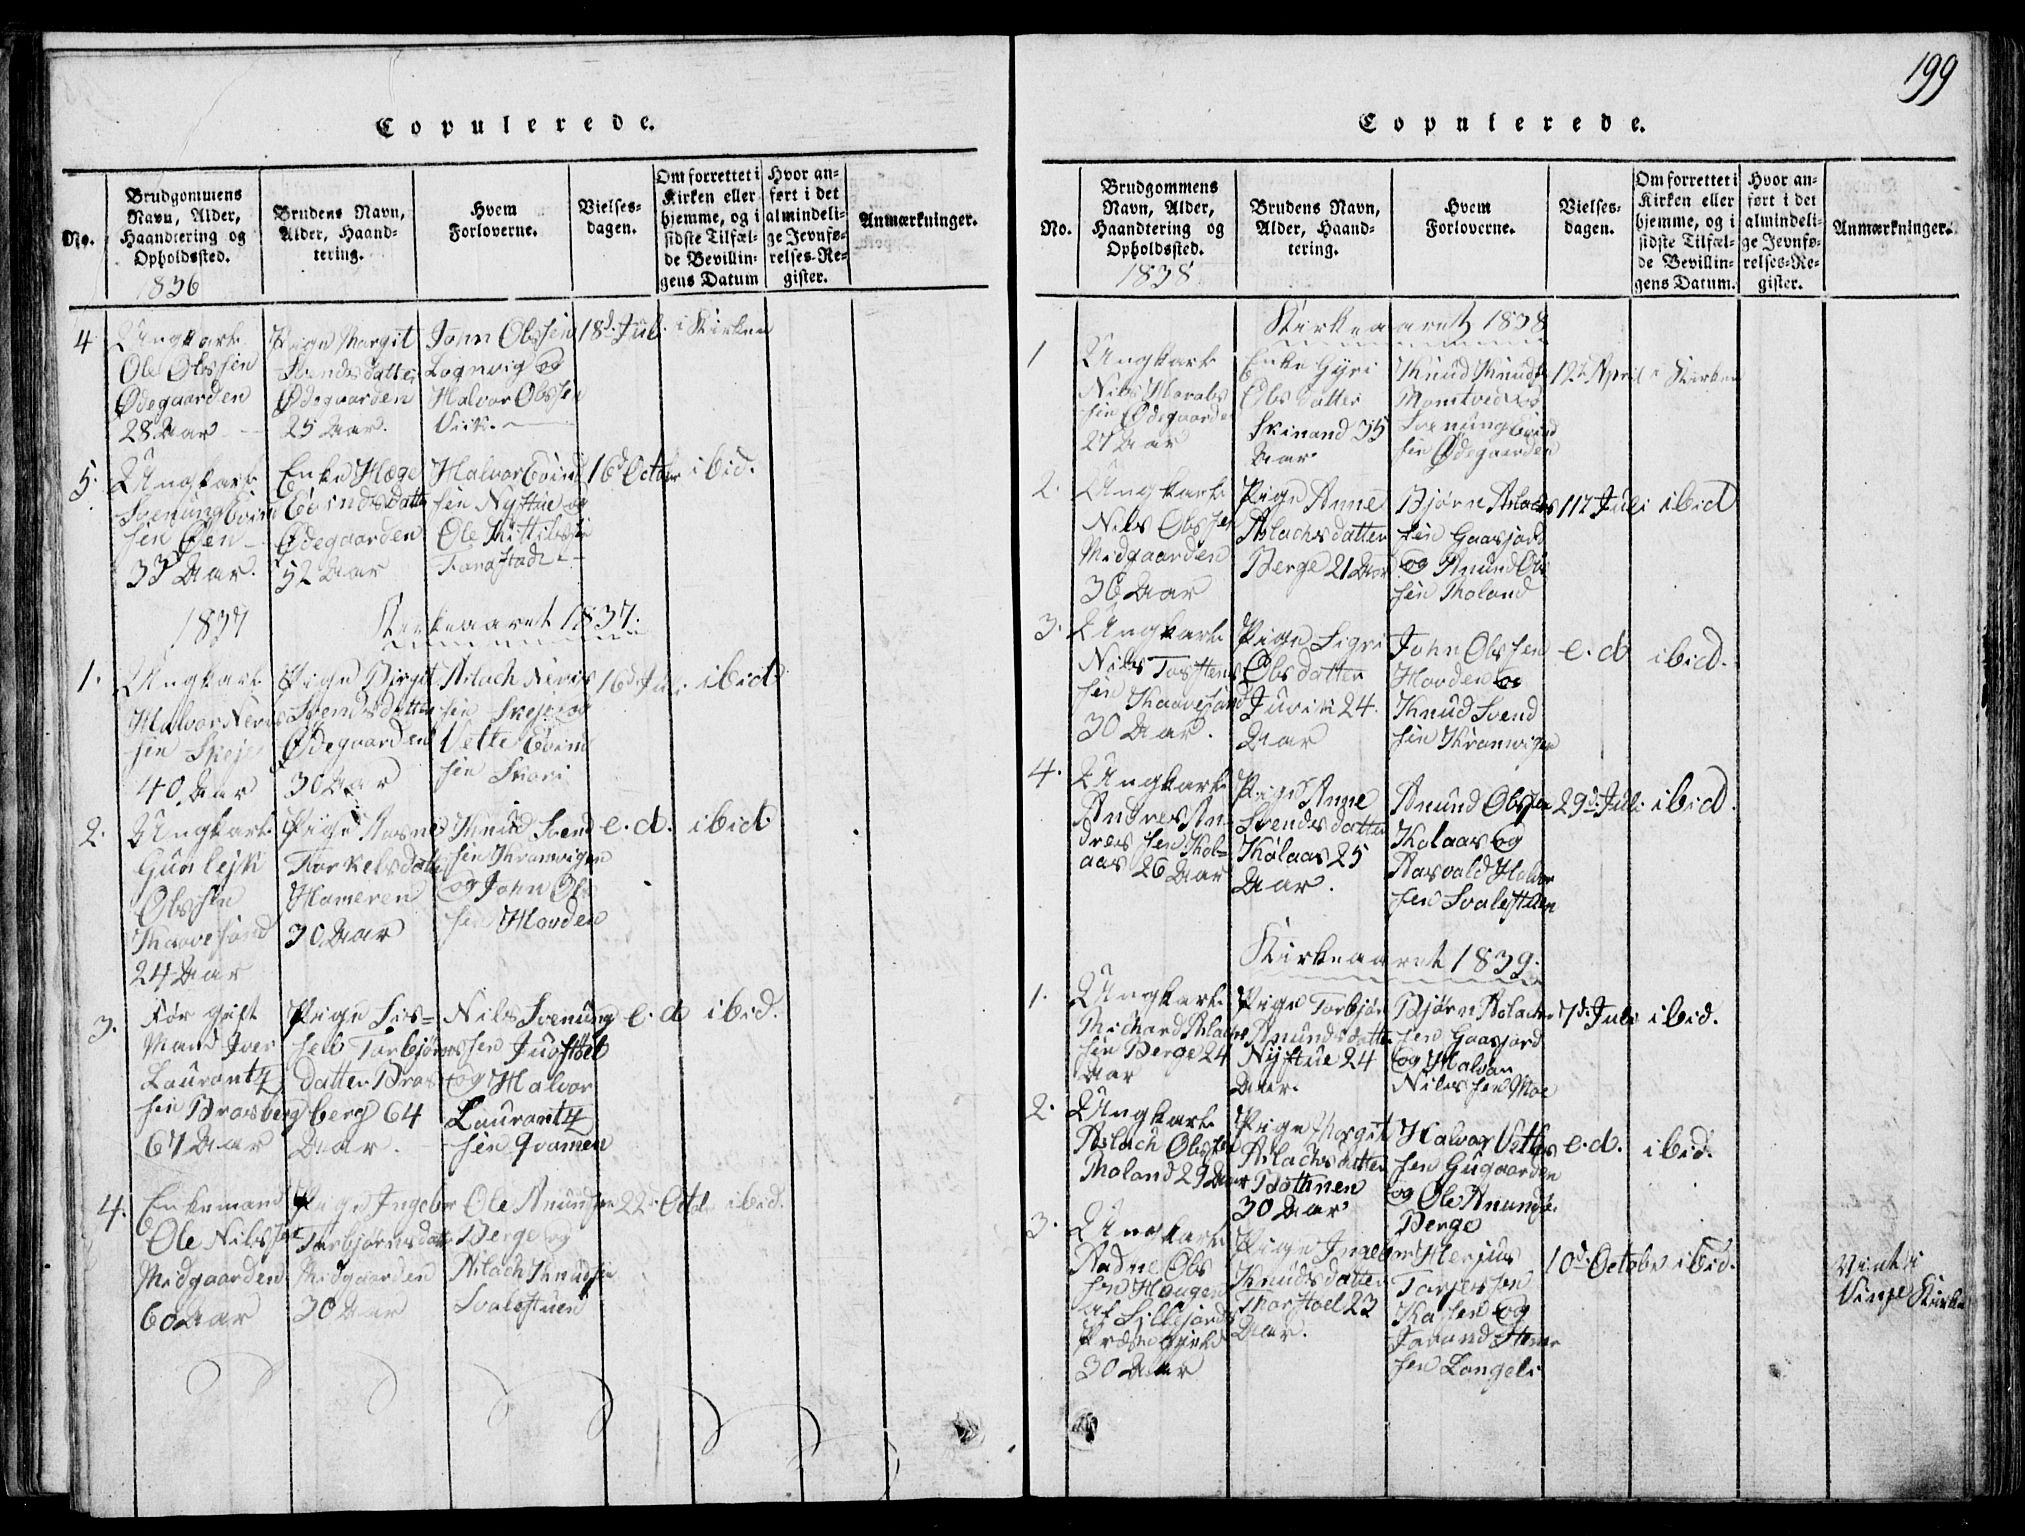 199
Copulerede.
No.
Brudgommens Navn, Alder, Haandtering og Opholdssted.
Brudens Navn, Alder, Haandtering.
Hvem Forloverne.
Vielsesdagen.
Om forrettet i Kirken eller hjemme, og i sidste Tilfælde Bevillingens Datum
Hvor anført i det almindelige Jevnførelses-Register.
Anmærkninger.
1836
4
Ungkarl
Ole Olssen
Ødegaarden
28 Aar
Pige Margit
Svendsdatter
Ødegaarden
25 Aar.
John Olssen
Lognvig og
Halvor Olssen
Viik.
18d. Juli
i Kirken
5.
Ungkarl
Svenung Eivind
sen Øen
33 Aar.
Enke Hæge
Eivindsdatter
Ødegaarden
52 Aar
Halvor Eivind
sen Nystue og
Ole Kittilssen
16d October
ibid.
1837
Kirkeaaret 1837.
1.
Ungkarl
Halvor Neris
sen Skeje
40 Aar
Pige Birgit
Svendsdatter
Ødegaarden
30 Aar
Aslach Neris
sen Skeje og
Vetle Eivind
sen
16d Juli
ibid
2.
Ungkarl
Gunlejk
Olssen
Kaavesand
24 Aar
Pige Aasne
Torkelsdatter
Hameren
30 Aar
Knud Svend
sen Kramvigen
og John Ols
sen Hovden
e. d.
ibid
3.
För gift
Mand Iver
Laurantz
sen Brasberg
67 Aar
Pige Lis=
Torbjørns
datter Bras
berg 64
Aar.
Nils Svenung
sen Juvstöel
og Halvor
Laurantz
sen Qvamen
e. d
ibid.
4.
Enkemand
Ole Nilssen
Midgaarden
60 Aar
Pige Ingebor
Torbjørnsdatter
Midgaarden
30 Aar
Ole Anundsen
Berge og
Aslach Knudsen
Svalestuen
22. Octbr
ibid.
Copulerede.
No.
Brudgommens Navn, Alder, Haandtering og Opholdssted.
Brudens Navn, Alder, Haandtering.
Hvem Forloverne.
Vielsesdagen.
Om forrettet i Kirken eller hjemme, og i sidste Tilfælde Bevillingens Datum.
Hvor anført i det almindelige Jevnførelses-Register.
Anmærkninger.
1838
Kirkeaaret 1838
1
Ungkarl
Nils Haralds
sen Ødegaarden
27 Aar
Enke Gyri
Olsdatter
Skinand 35
Aar
Knud Knuds
og
Svenung Eivind
sen Ødegaarden
12te April
i Kirken
2.
Ungkarl
Nils Olssen
Midgaarden
30 Aar
Pige Anne
Aslachsdatter
Berge 21 Aar
Bjørn Aslachs
sen Gaasjord
og Anund Ols
sen Tholand
Juli
ibid
3.
Ungkarl
Nils Torstens
sen Kaavesand
30 Aar.
Pige Sigri
Olsdatter
24.
Aar
John Olssen
Hovden og
Knud Svend
sen Kramvigen
e. d
ibid.
4.
Ungkarl
Andres An
dres sen Kol=
aas 26 Aar
Pige Anne
Svendsdatter
Kolaas 25
Aar.
Anund Olssen
Kolaas og
Aasvald Halvor
sen Svalestuen
29d. Juli
ibid.
Kirkeaaret 1839.
1.
Ungkarl
Richard Aslachs
sen Berge 24
Aar
Pige Torbjør
Anundsdatter
Nystue 24
Aar.
Bjørn Aslachs
sen Gaasjord
og Halvor
Nils sen Moe
7d. Juli
ibid.
2.
Ungkarl
Aslach Olssen
Tholand 29 Aar
Pige Margit
Aslachsdatter
Bottnen
30 Aar
Halvor Vetles
sen Gugaarden
og Ole Anunds.
Berge
e. d.
ibid.
3.
Ungkarl
Aadne Ols
sen Haugen
af Sillejords
Præstegjeld
30 Aar
Pige Ingebor
Knudsdatter
23
Aar.
Herjus
Torjersen
og
sen Langeli
10d. October
ibid.
Viet i
Vinje Kirke